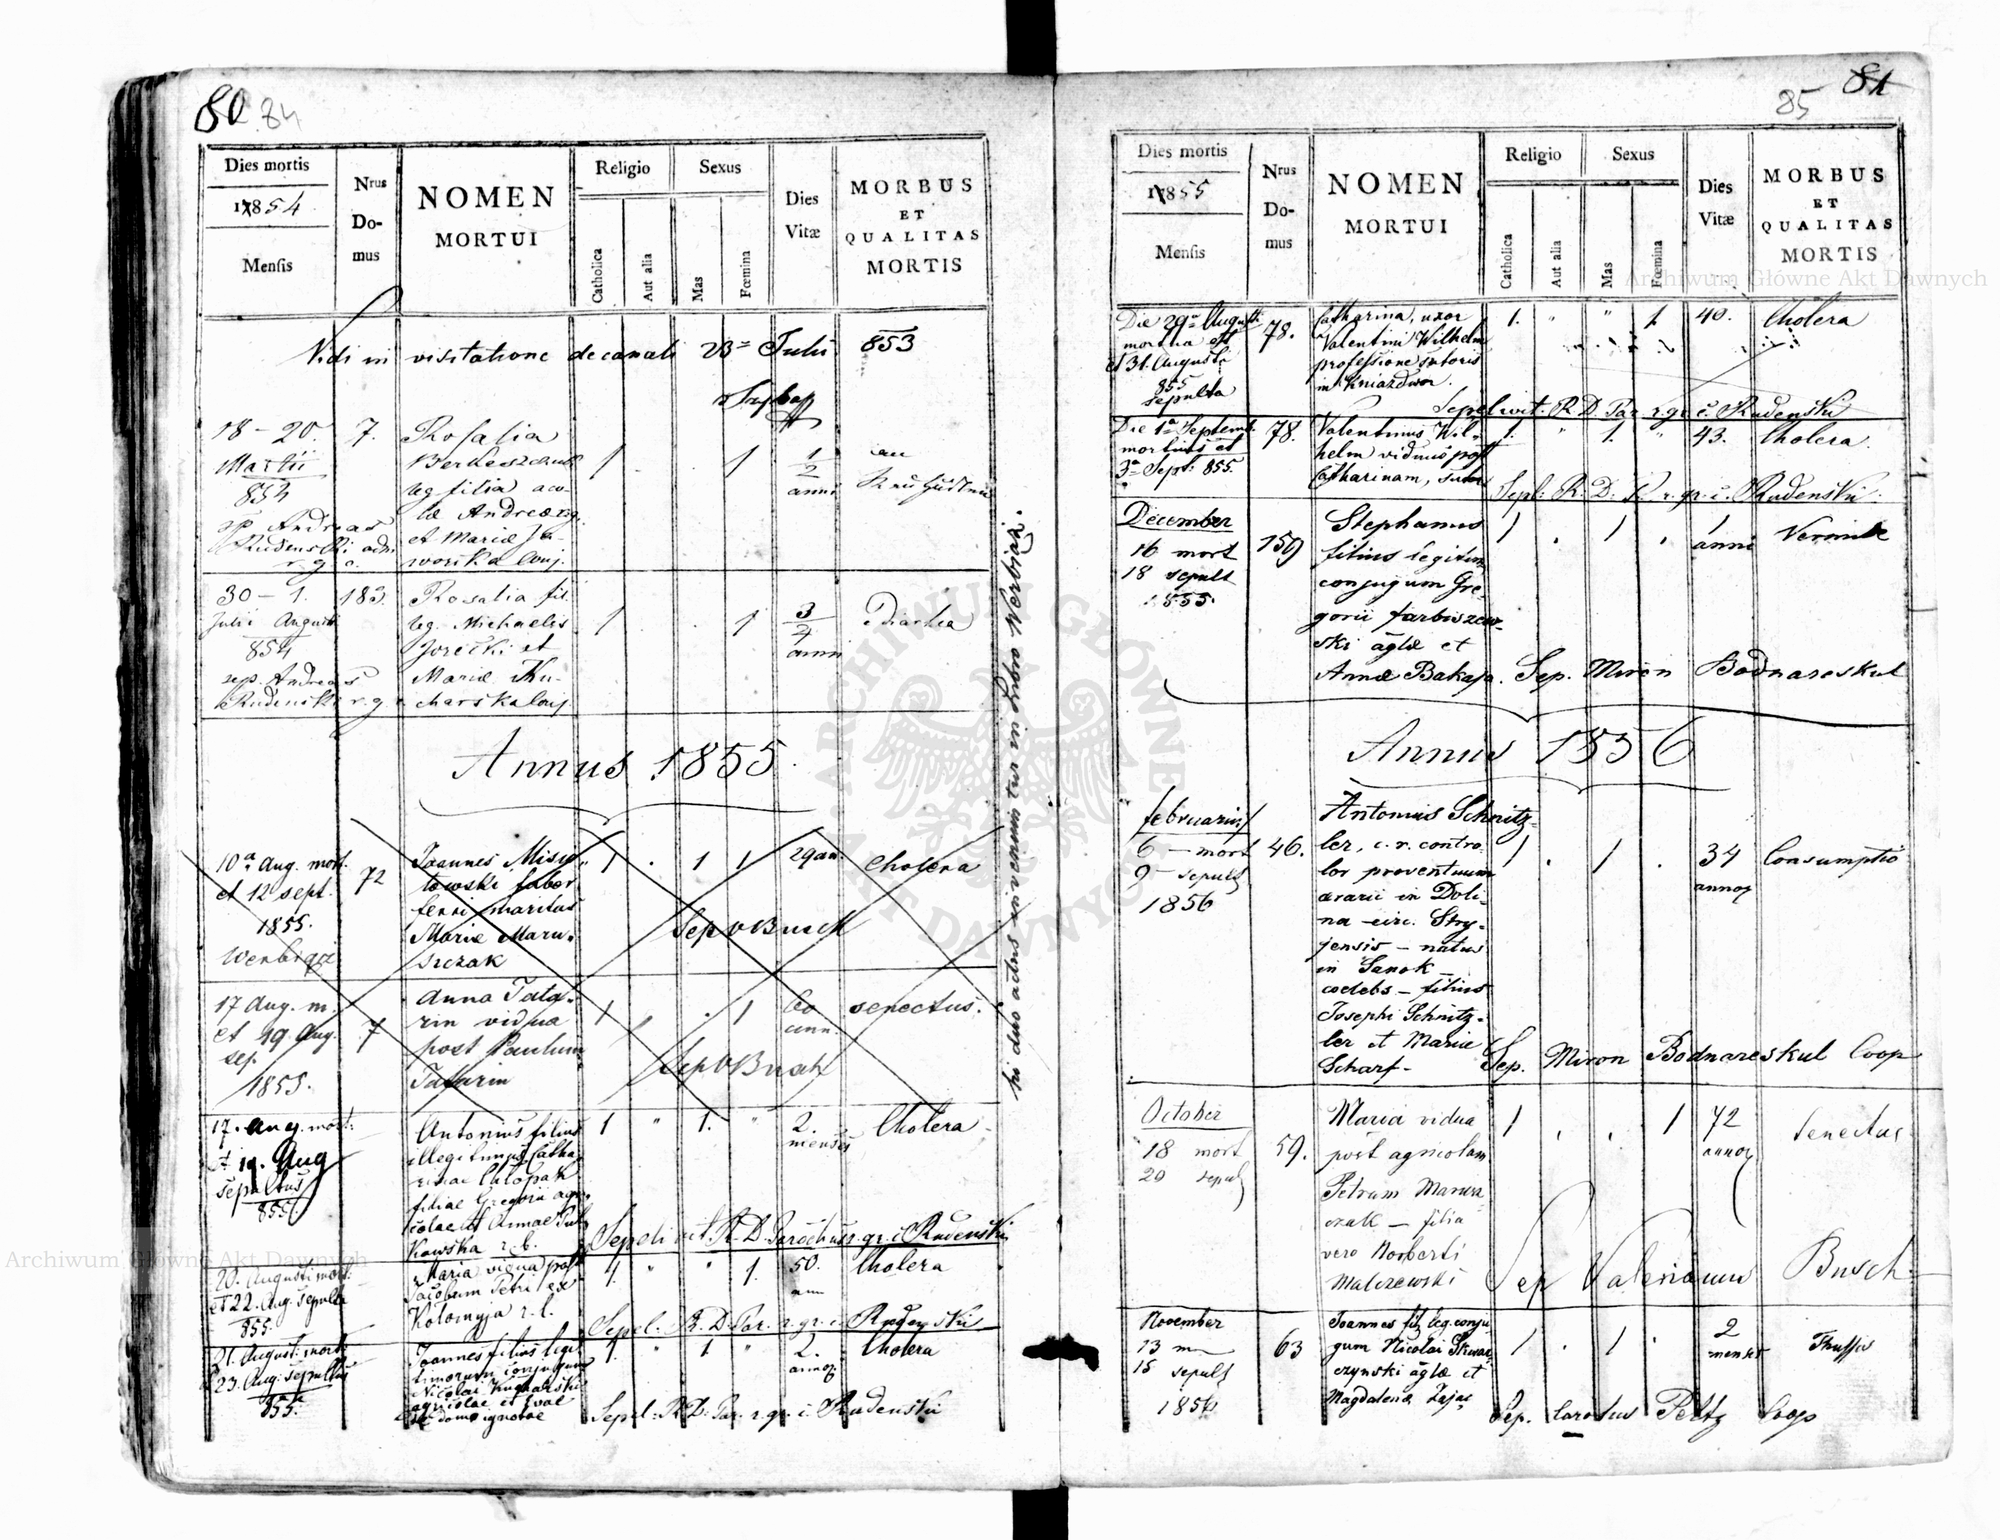 80 84
Dies mortis
1854
Mensis
Nrus
Do-
mus
NOMEN
MORTUI
Religio
Catholica
Aut alia
Sexus
Mas
Fœmina
Dies
Vitæ
MORBUS
ET
QUALITAS
MORTIS
Vidi in visitatione decanali 23 Julii 853
18 – 20. 7. Rosalia
Martii
leg filia aco-
854
læ Andreæ
sep. Andreas et Mariæ Ja-
Rudenski adm worska conj.
r. g. c.
1 . . 1 1/2 anni
30 – 1. 183. Rosalia fil.
Julii Augusti leg. Michaelis
854 et
sep. Andreas Mariæ Ku-
Rudenski r. g. c. charska conj
1 . . 1 3/4 anni Diarhea
Annus 1855.
10a Aug. mort. 72 Joannes Misy- 1 . 1 1 29 an. Cholera
et 12 sept. towski faber
1855. ferri maritus Sep V Busch
Werbiąz Mariæ Maru-
szczak
17 Aug. m. 7 Anna Tata- 1 . 1 60 ann. senectus.
et 19 Aug. rin vidua
sep. post Paulum Sep V Busch
1855. Tatarin
17. Aug. mort: Antonius filius 1 " 1. " 2. menses Cholera
et 19. Aug illegitimus Catha-
sepultus rinae Chlopak
855. filiae Gregorii agri-
colae et Annae
kowska r. l.
Sepelivit R. D. Parochus r. gr. c. Rudenski
20. Augusti mort: Maria vidua post 1. " " 1. 50. ann Cholera
et 22. Aug. sepulta Jacobum Petri ex
855. Kolomyja r. l.
Sepel: R. D. Par. r. gr. c. Rudenski
21. August: mort: Joannes filius legi- 1. " 1 " 2. annor. Cholera
23. Aug: sepultus timorum conjugum
855. Nicolai
agricolae et Evae
de domo ignotae
Sepel: R. D. Par. r. gr. c. Rudenski
hi duo actus inveniuntur in Libro Werbiąż.
85 81
Dies mortis
1855
Mensis
Nrus
Do-
mus
NOMEN
MORTUI
Religio
Catholica
Aut alia
Sexus
Mas
Fœmina
Dies
Vitæ
MORBUS
ET
QUALITAS
MORTIS
Die 29a Augusti 78. Catharina, uxor 1. " " 1. 40. Cholera
mortua est Valentini Wilhelm
et 31. Augusti professione sutoris
855 in Kniazdwor.
sepulta
Sepelivit. R. D. Par. r. gr. c. Rudenski
Die 1a Septemb. 78. Valentinus Wil- 1. " 1. " 43. Cholera.
mortuus et helm viduus post
3a Sept: 855. Catharinam, sutor
Sepl: R. D. P. r. gr. c. Rudenski.
December Stephanus
16 mort 159 filius legitim 1 . 1 . 1 anni
18 sepult conjugum Gre-
1855. gorii Jarbiszew-
ski agłæ et
Annæ Bakaja. Sep. Miron Bodnareskul
Annus 1856
februarius Antonius Schnitz-
6 – mort 46. ler, c. r. contro- 1 . 1 . 34 annor Consumptio
9 – sepult lor proventuum
1856 ærarii in Doli-
na – circ. Stry-
jensis – natus
in Sanok –
cœlebs – filius
Josephi Schnitz-
ler et Mariæ
Scharf – Sep. Miron Bodnareskul Coop
October Maria vidua 1 . . 1 72 annor Senectus
18 mort 59. post agricolam
20 sepult Petrum Marusz-
czak – filia
vero Norberti
Malczewski Sep Valerianus Busch
November Joannes fil leg. conju- 1 . 1 . 2 menses Thussis
13 m 63 gum Nicolai Skwar-
15 sepult czynski agłæ et
1856 Magdalenæ Zając
Sep. Carolus Peltz Coop
Archiwum Główne Akt Dawnych
ARCHIWUM GŁÓWNE AKT DAWNYCH
Archiwum Główne Akt Dawnych